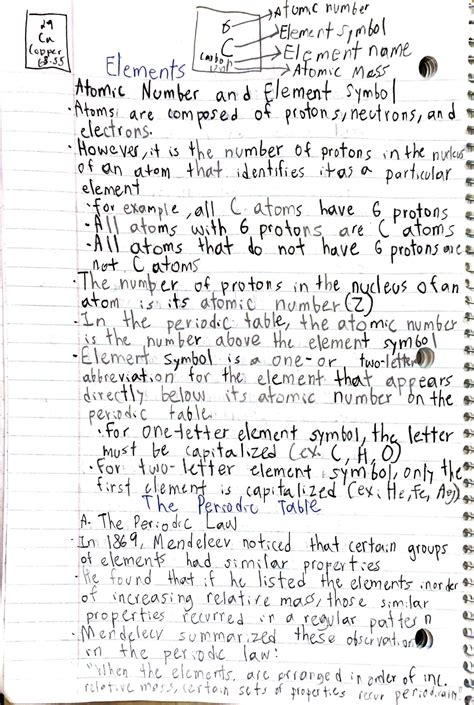 29
Cu
Copper
63.55
6 Atomic number
C Element symbol
Carbon Element name
Atomic Mass
Elements
Atomic Number and Element Symbol
· Atoms are composed of protons, neutrons, and
electrons.
· However, it is the number of protons in the nucleus
of an atom that identifies it as a particular
element
· for example, all C atoms have 6 protons
· All atoms with 6 protons are C atoms
· All atoms that do not have 6 protons are
not C atoms
· The number of protons in the nucleus of an
atom is its atomic number (Z)
· In the periodic table, the atomic number
is the number above the element symbol
· Element symbol is a one- or two-letter
abbreviation for the element that appears
directly below its atomic number on the
periodic table
· for one-letter element symbol, the letter
must be capitalized (ex. C, H, O)
· For two-letter element symbol, only the
first element is capitalized (ex: He, Fe, Ag)
The Periodic Table
A. The Periodic Law
· In 1869, Mendeleev noticed that certain groups
of elements had similar properties
· He found that if he listed the elements in order
of increasing relative mass, those similar
properties recurred in a regular pattern
· Mendeleev summarized these observations
in the periodic law:
"When the elements are arranged in order of inc.
relative mass, certain sets of properties recur